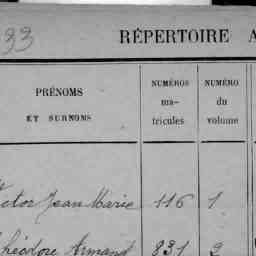 33
RÉPERTOIRE A
PRÉNOMS
ET SURNOMS
NUMÉROS
ma-
tricules
NUMÉRO
du
volume
ictor Jean Marie 116 1
héodore Armand 831 2